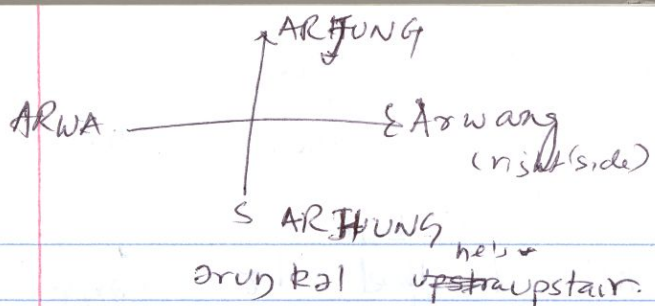 ARJUNG
ARWA
Arwang
(right side)
S ARHUNG
he is
əruŋ kəl upstair.